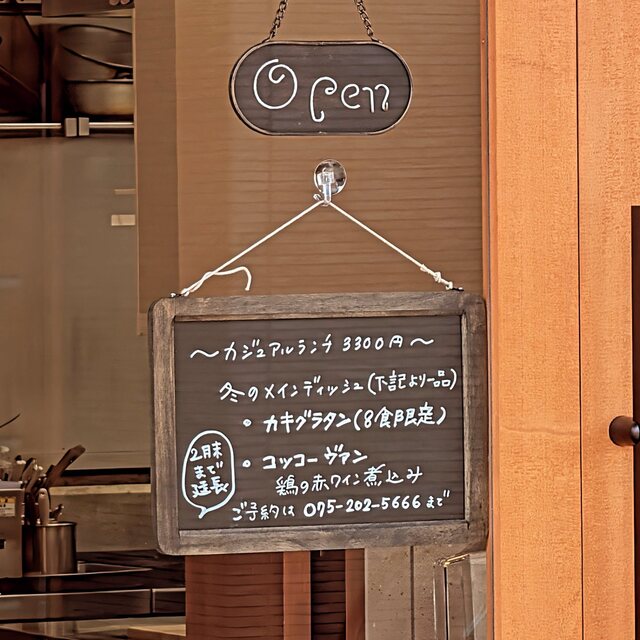 Open
～カジュアルランチ 3300円～
冬のメインディッシュ(下記より一品)
・カキグラタン(8食限定)
・コッコーヴァン
鶏の赤ワイン煮込み
2月末
まで
延長
ご予約は 075-202-5666まで